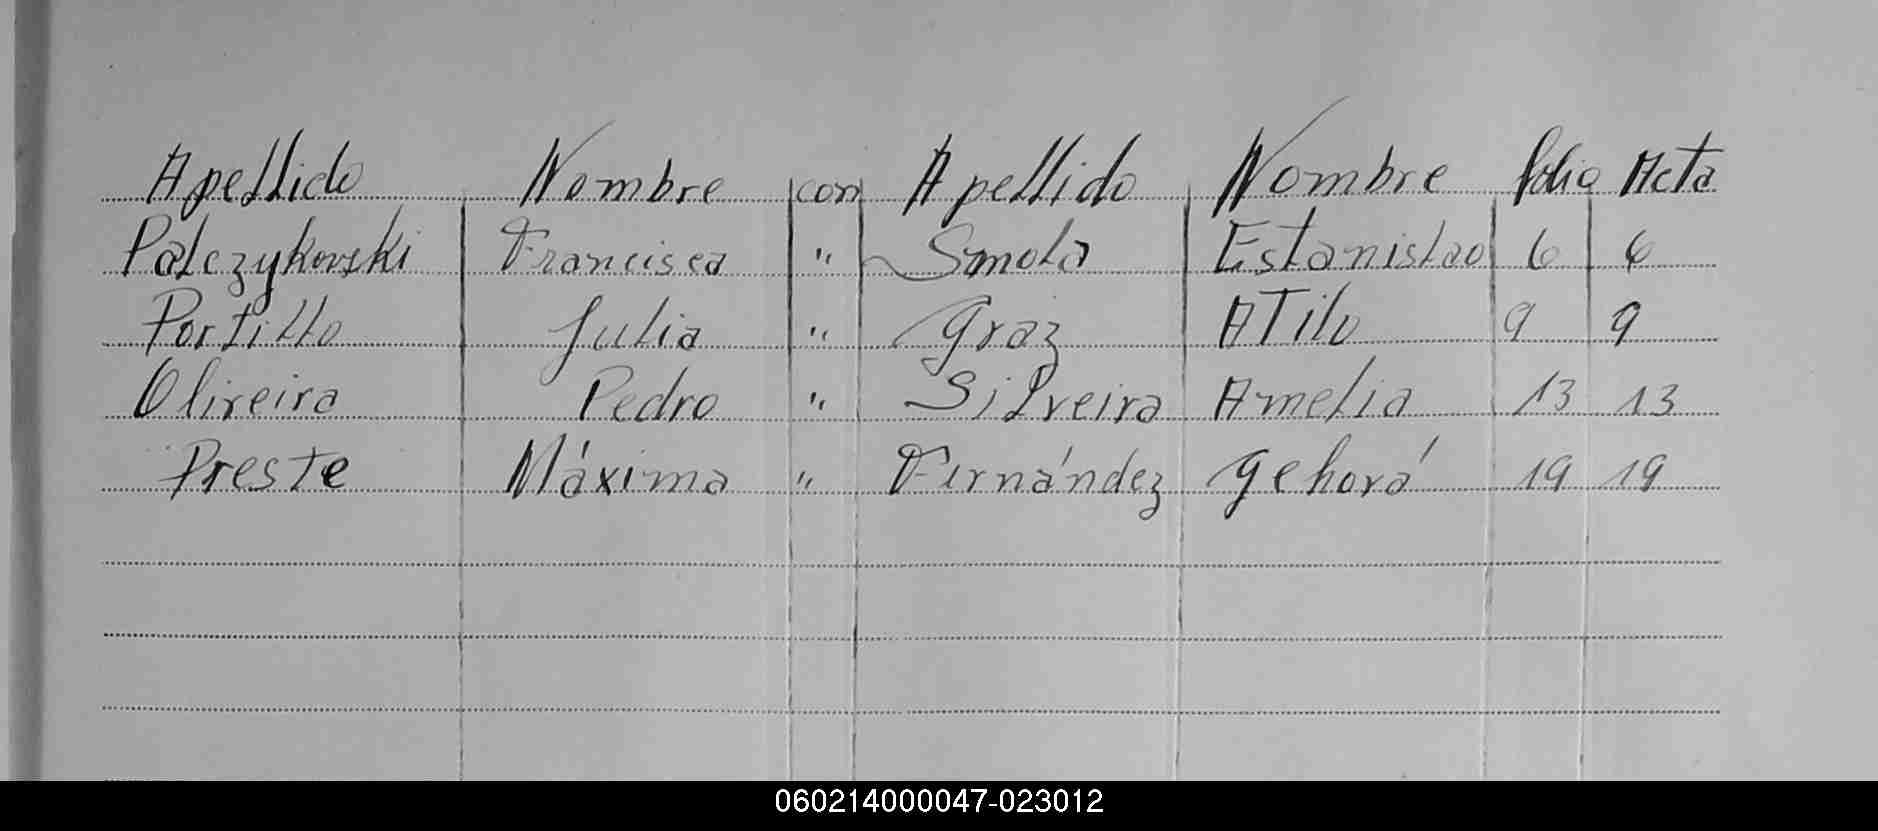 Apellido Nombre con Apellido Nombre folio Acta
Palczykovski Francisca " Smola Estanislao 6 6
Portillo Julia " Graz Atilo 9 9
Oliveira Pedro " Silveira Amelia 13 13
Preste Máxima " Fernández Gehorá 19 19
060214000047-023012